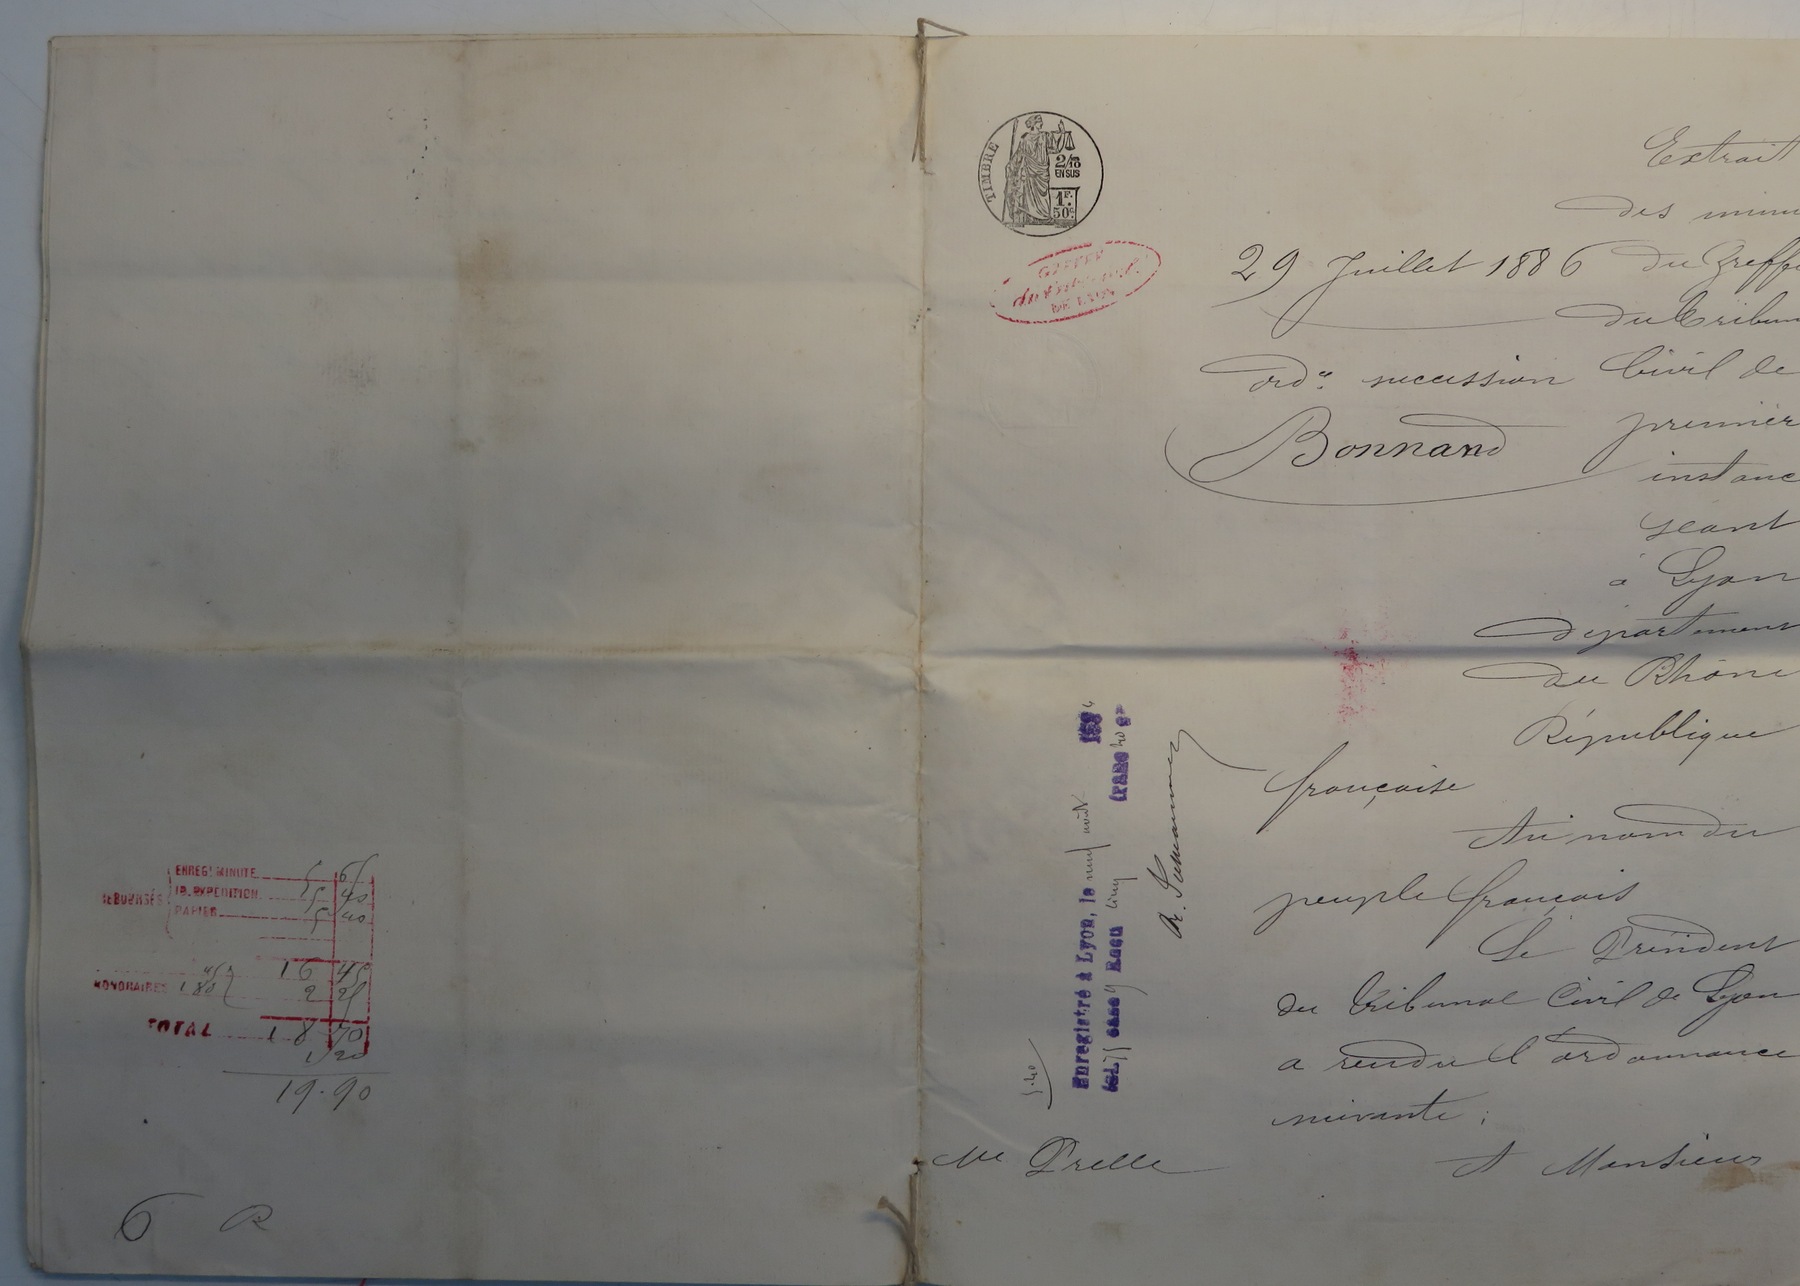 ENREGt MINUTE 5 65
ID. EXPEDITION 5 40
PAPIER 5 40
DÉBOURSÉS
16 45
HONORAIRES 1 80 45 2 25
TOTAL 18 70
1 20
19.90
6 R
TIMBRE
2/10
EN SUS
1F.
50c
GREFFE
DE LYON
Extrait
des minu
29 Juillet 1886 du Greffe
du Tribun
ordce succession Civil de
Bonnand premièr
instanc
séant
à Lyon
département
du Rhône
République
française
Au nom du
peuple français
Le Président
du Tribunal Civil de Lyon
a rendu l'ordonnance
suivante :
A Monsieur
Enregistré à Lyon, le neuf août 1886
Reçu cinq francs 40 c.
5.40
Me Prelle